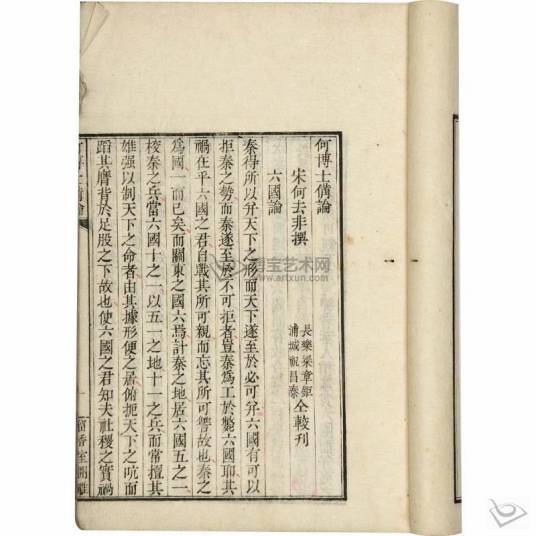 何博士備論
宋何去非撰
長樂梁章鉅
浦城祝昌泰
仝較刊
六國論
秦得所以弁天下之形而天下遂至於必可弁六國有可以
拒秦之勢而秦遂至於不可拒者豈秦為工於斃六國耶其
禍在乎六國之君自戰其所可親而忘其所可讐故也秦之
為國一而已矣而關東之國六焉計秦之地居六國五之一
校秦之兵當六國十之一以五一之地十一之兵而常擅其
雄强以制天下之命者由其據形便之居俯扼天下之吭而
蹈其膺背於足股之下故也使六國之君知夫社稷之實禍
一
留香室開雕
博宝艺术网
www.artxun.com